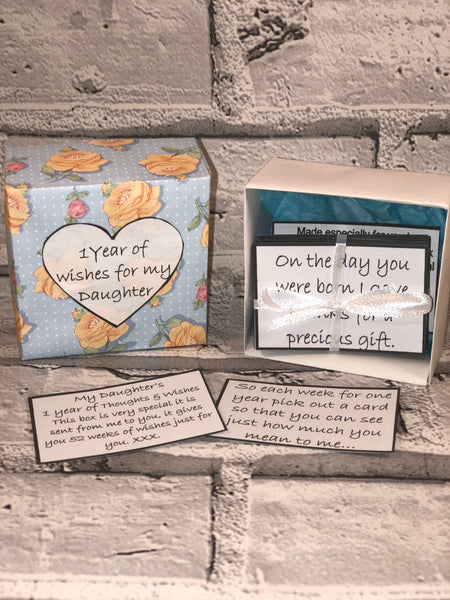 1Year of
wishes for my
Daughter
Made especially for
On the day you
were born I gave
for a
precious gift.
My Daughter's
1 year of Thoughts & Wishes
This box is very special it is
sent from me to you, it gives
you 52 weeks of wishes just for
you. xxx.
So each week for one
year pick out a card
so that you can see
just how much you
mean to me...